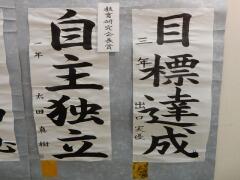 目標達成
三年 出口実優
教育研究会長賞
自主独立
一年 太田真樹